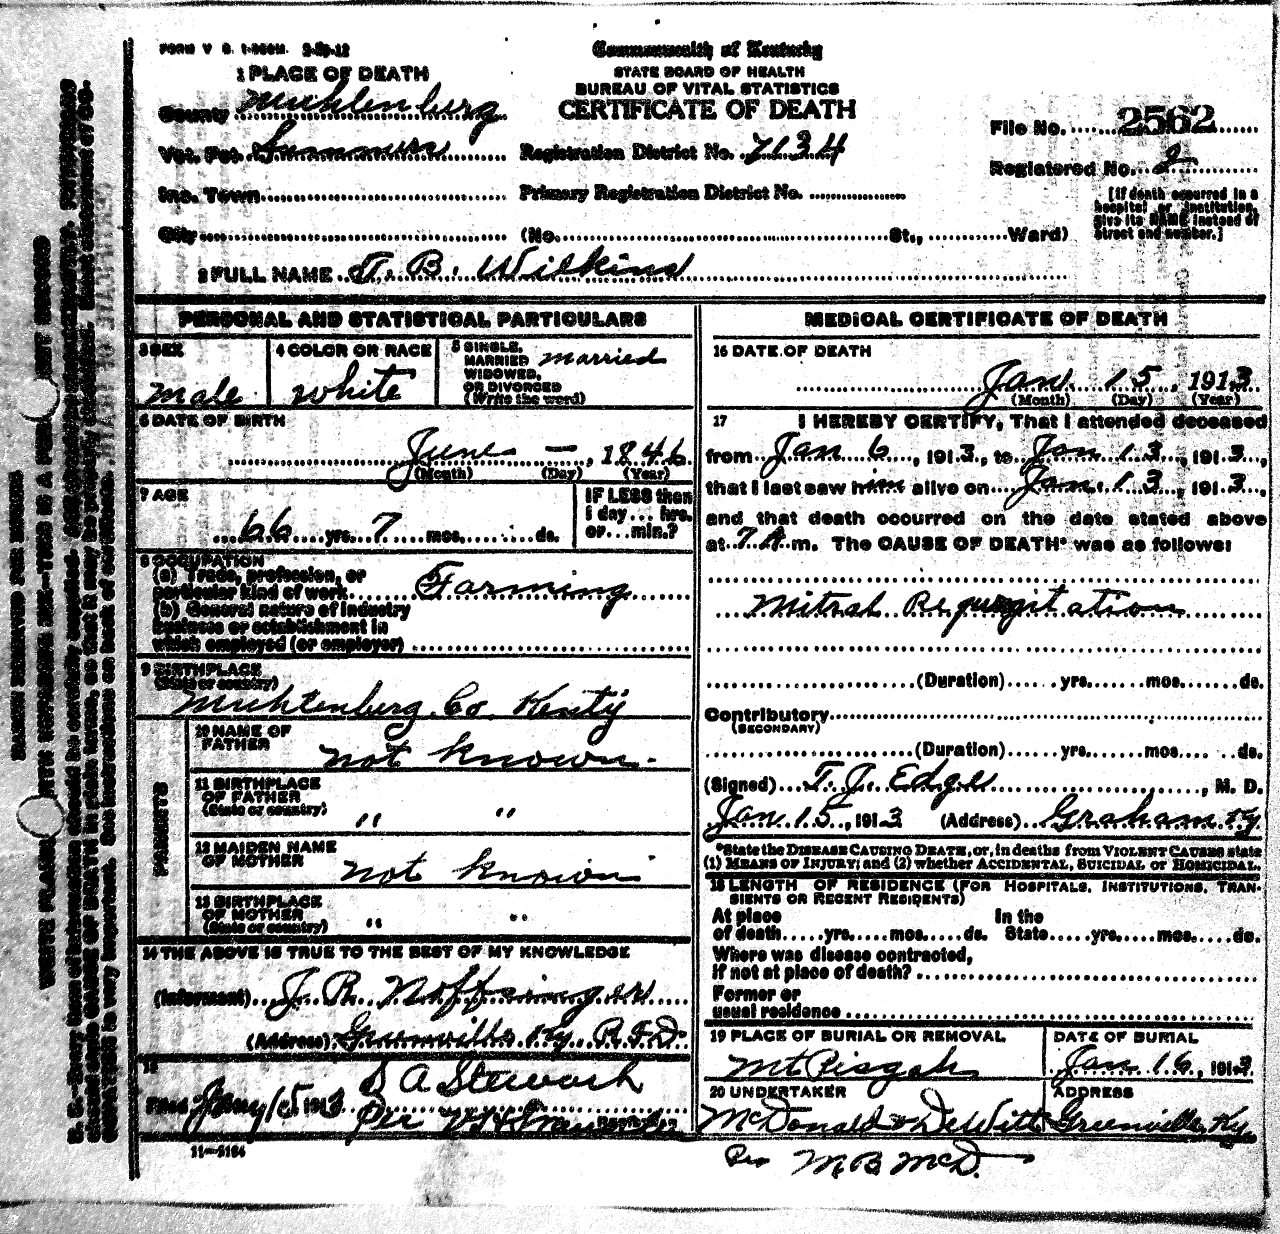 FORM V. S. 1-500M. 2-25-12
Commonwealth of Kentucky
STATE BOARD OF HEALTH
BUREAU OF VITAL STATISTICS
CERTIFICATE OF DEATH
1 PLACE OF DEATH
County Muhlenburg
Vot. Pct.
Registration District No. 7134
File No. 2562
Registered No. 2
Inc. Town
Primary Registration District No.
City (No. St., Ward)
[If death occurred in a hospital or institution, give its NAME instead of street and number.]
2 FULL NAME J. B. Wilkins
PERSONAL AND STATISTICAL PARTICULARS
3 SEX
male
4 COLOR OR RACE
white
5 SINGLE, MARRIED WIDOWED, OR DIVORCED (Write the word)
married
6 DATE OF BIRTH
June — , 1846
(Month) (Day) (Year)
7 AGE
66 yrs. 7 mos. ds.
IF LESS than 1 day... hrs. or...min.?
8 OCCUPATION
(a) Trade, profession, or particular kind of work Farming
(b) General nature of industry business or establishment in which employed (or employer)
9 BIRTHPLACE
(State or country)
Muhlenburg Co. Kenty
PARENTS
10 NAME OF FATHER
not known.
11 BIRTHPLACE OF FATHER (State or country)
" "
12 MAIDEN NAME OF MOTHER
not known
13 BIRTHPLACE OF MOTHER (State or country)
" "
14 THE ABOVE IS TRUE TO THE BEST OF MY KNOWLEDGE
(Informant) J. R. Noffsinger
(Address) Greenville Ky. R.F.D.
15
Filed Jany 15 1913 S A Steward
Per
MEDICAL CERTIFICATE OF DEATH
16 DATE OF DEATH
Jan. 15, 1913
(Month) (Day) (Year)
17 I HEREBY CERTIFY, That I attended deceased
from Jan 6, 1913, to Jan 13, 1913,
that I last saw him alive on Jan. 13, 1913,
and that death occurred on the date stated above
at 7 A m. The CAUSE OF DEATH* was as follows:
Mitral Regurgitation
(Duration) yrs. mos. ds.
Contributory
(SECONDARY)
(Duration) yrs. mos. ds.
(Signed) T. J. Edge, M. D.
Jan 15, 1913 (Address) Graham Ky
*State the DISEASE CAUSING DEATH, or, in deaths from VIOLENT CAUSES state
(1) MEANS OF INJURY; and (2) whether ACCIDENTAL, SUICIDAL or HOMICIDAL.
18 LENGTH OF RESIDENCE (FOR HOSPITALS, INSTITUTIONS, TRANSIENTS OR RECENT RESIDENTS)
At place of death yrs. mos. ds. In the State yrs. mos. ds.
Where was disease contracted,
if not at place of death?
Former or
usual residence
19 PLACE OF BURIAL OR REMOVAL
Mt Pisgah
DATE OF BURIAL
Jan. 16, 1913
20 UNDERTAKER
McDonald & DeWitt
ADDRESS
Greenville, Ky.
Per M B McD.
11—5184
MARGIN RESERVED FOR BINDING
WRITE PLAINLY WITH UNFADING INK—THIS IS A PERMANENT RECORD